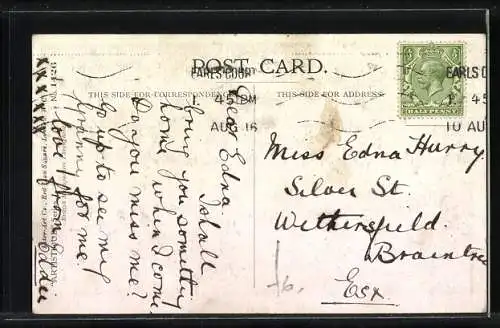 POST CARD.
THIS SIDE FOR CORRESPONDENCE
THIS SIDE FOR ADDRESS.
EARLS COURT
4 45 PM
AUG 16
EARLS CO
10 AU
HALF PENNY
Dear Edna
I shall
bring you something
home when I come.
Do you miss me?
Go up to see my
Granny for me
love from
Sadie
xxxxxxx
Miss Edna Hurry
Silver St.
Wethersfield.
Braintree
Esx